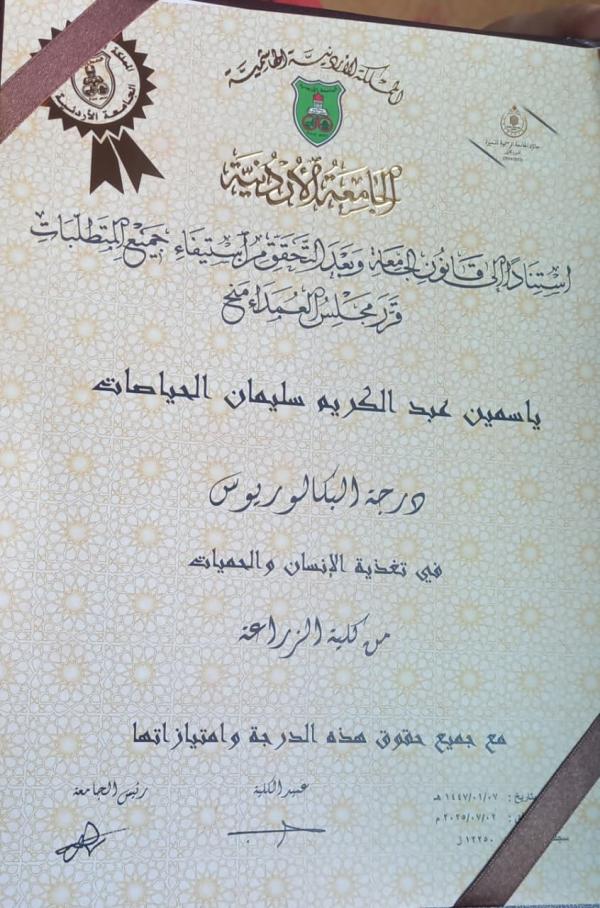 المملكة الأردنية الهاشمية
المملكة
الجامعة الأردنية
الجامعة الأردنية
استنادًا إلى قانون الجامعة وبعد التحقق من استيفاء جميع المتطلبات
قرر مجلس العمداء منح
ياسمين عبد الكريم سليمان الحياصات
درجة البكالوريوس
في تغذية الإنسان والحميات
من كلية الزراعة
مع جميع حقوق هذه الدرجة وامتيازاتها
عميد الكلية
رئيس الجامعة
تاريخ : ١٤٤٧/٠١/٠٧ هـ
: ٢٠٢٥/٠٧/٠٢ م
١٢٢٥٠ ز